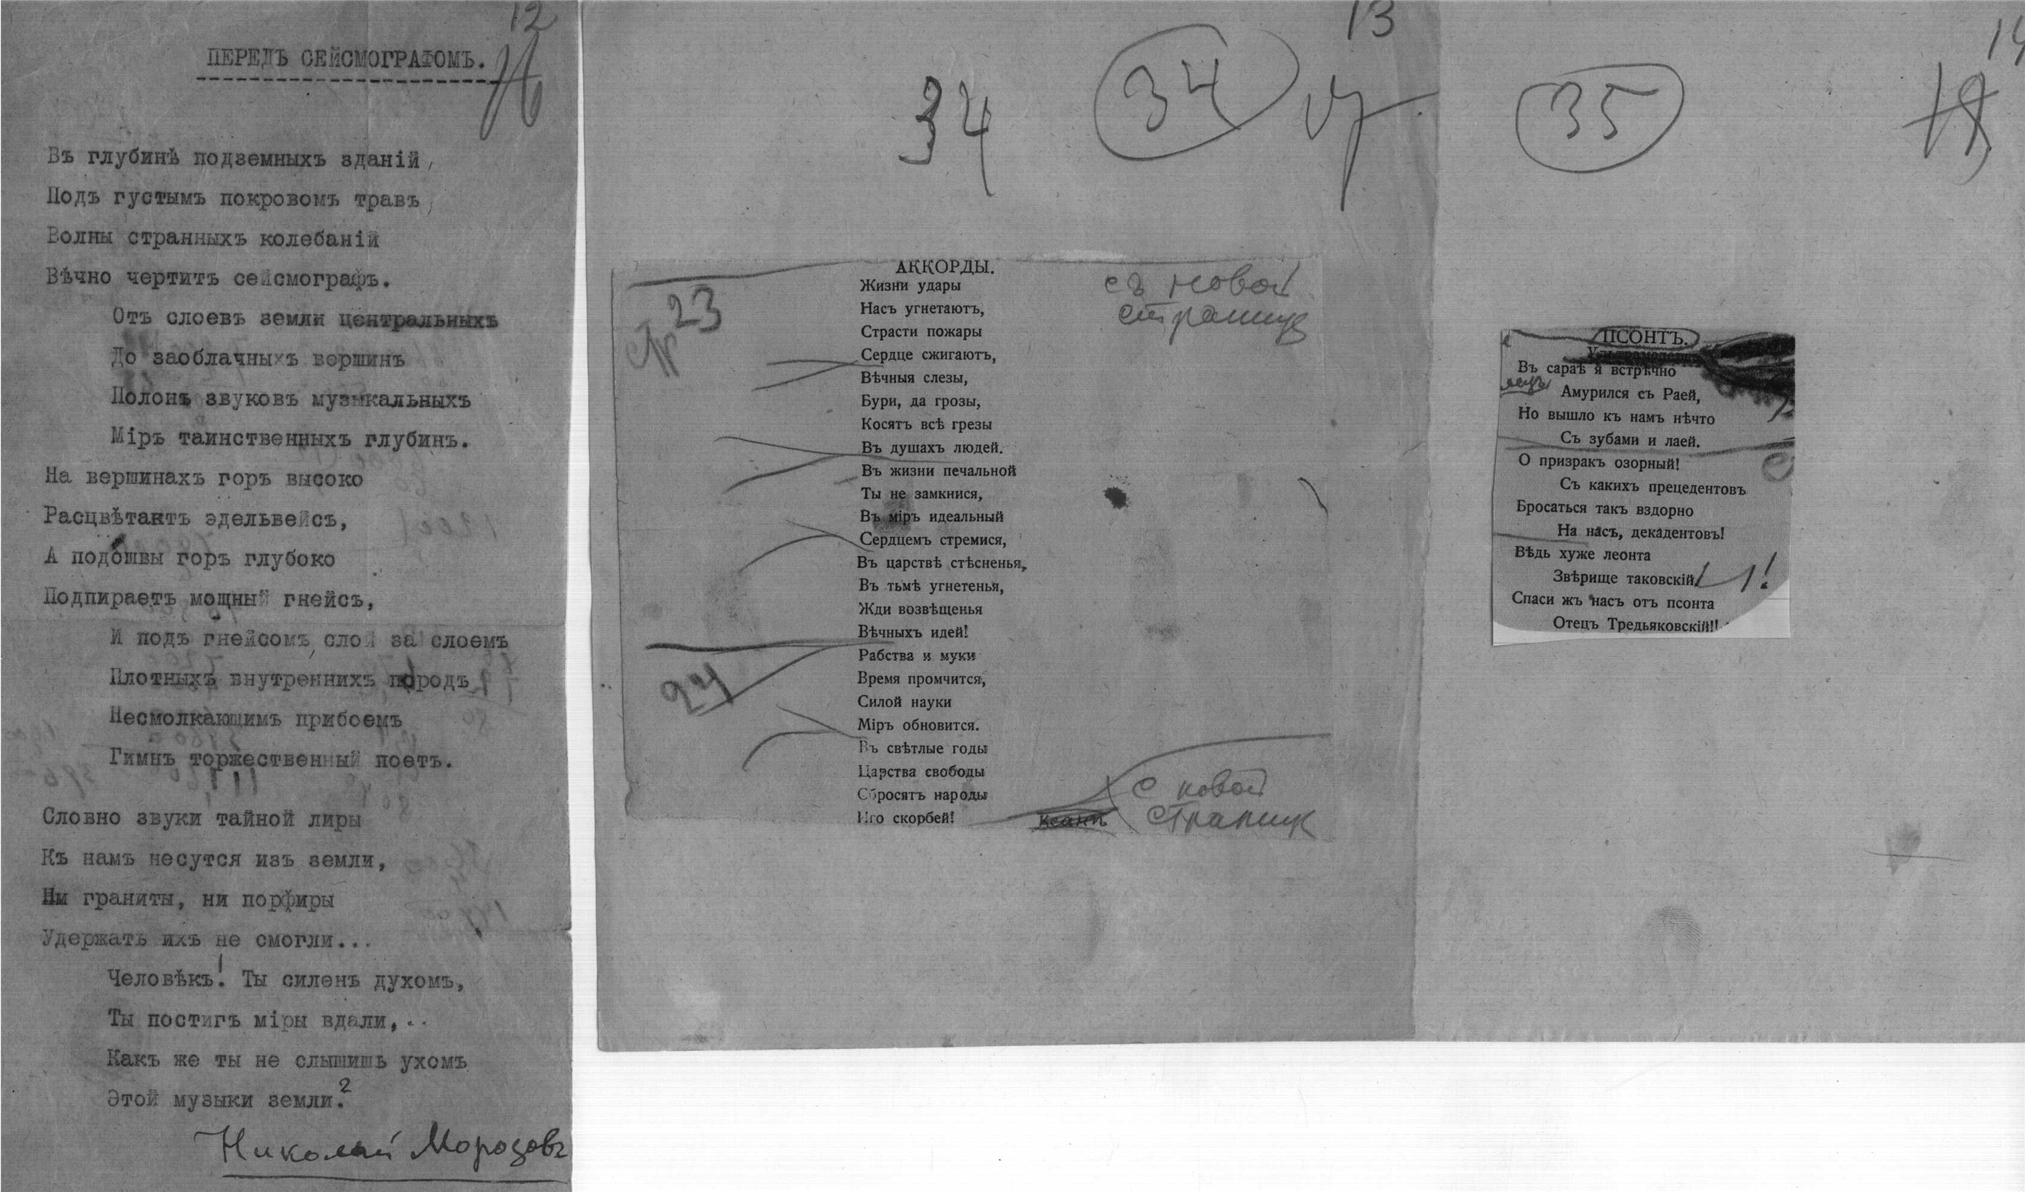 12
ПЕРЕДЪ СЕЙСМОГРАФОМЪ.
Въ глубинѣ подземныхъ зданій,
Подъ густымъ покровомъ травъ,
Волны странныхъ колебаній
Вѣчно чертитъ сейсмографъ.
Отъ слоевъ земли центральныхъ
До заоблачныхъ вершинъ
Полонъ звуковъ музыкальныхъ
Міръ таинственныхъ глубинъ.
На вершинахъ горъ высоко
Расцвѣтаетъ эдельвейсъ,
А подошвы горъ глубоко
Подпираетъ мощный гнейсъ,
И подъ гнейсомъ, слой за слоемъ
Плотныхъ внутреннихъ породъ
Несмолкающимъ прибоемъ
Гимнъ торжественный поетъ.
Словно звуки тайной лиры
Къ намъ несутся изъ земли,
Ни граниты, ни порфиры
Удержать ихъ не смогли...
Человѣкъ! Ты силенъ духомъ,
Ты постигъ міры вдали,..
Какъ же ты не слышишь ухомъ
Этой музыки земли?
Николай Морозовъ
13
34
34
АККОРДЫ.
съ новой
страницѣ
23
Жизни удары
Насъ угнетаютъ,
Страсти пожары
Сердце сжигаютъ,
Вѣчныя слезы,
Бури, да грозы,
Косятъ всѣ грезы
Въ душахъ людей.
Въ жизни печальной
Ты не замкнися,
Въ міръ идеальный
Сердцемъ стремися,
Въ царствѣ стѣсненья,
Въ тьмѣ угнетенья,
Жди возвѣщенья
Вѣчныхъ идей!
24
Рабства и муки
Время промчится,
Силой науки
Міръ обновится.
Въ свѣтлые годы
Царства свободы
Сбросятъ народы
Иго скорбей!
с новой
страниц
14
35
ПСОНТЪ.
Въ сараѣ я встрѣчно
Амурился съ Раей,
Но вышло къ намъ нѣчто
Съ зубами и лаей.
О призракъ озорный!
Съ какихъ прецедентовъ
Бросаться такъ вздорно
На насъ, декадентовъ!
Вѣдь хуже леонта
Звѣрище таковскій!
Спаси жъ насъ отъ псонта
Отецъ Тредьяковскій!!